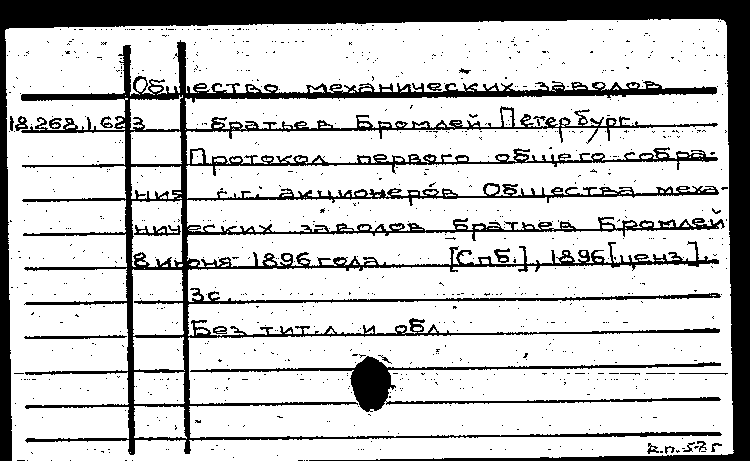 Общество механических заводов
18.268.1.623 братьев Бромлей. Петербург.
Протокол первого общего собра-
ния г.г. акционеров Общества меха-
нических заводов братьев Бромлей
8 июня 1896 года. [Спб.], 1896 [ценз.].
3с.
Без тит. л. и обл.